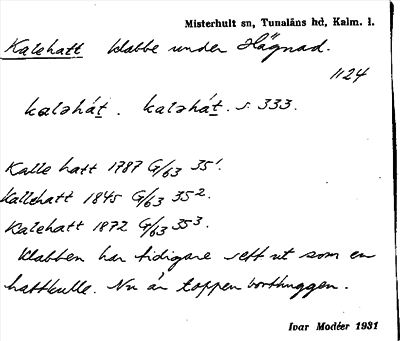 Misterhult sn, Tunaläns hd, Kalm. l.
Kalehatt klabbe under Hägnad.
1124
kaləhát. kaləhát. s. 333.
Kalle hatt 1787 G/63 35¹.
Kallehatt 1845 G/63 35².
Kalehatt 1872 G/63 35³.
Klabben har tidigare sett ut som en
hattkulle. Nu är toppen borthuggen.
Ivar Modéer 1931